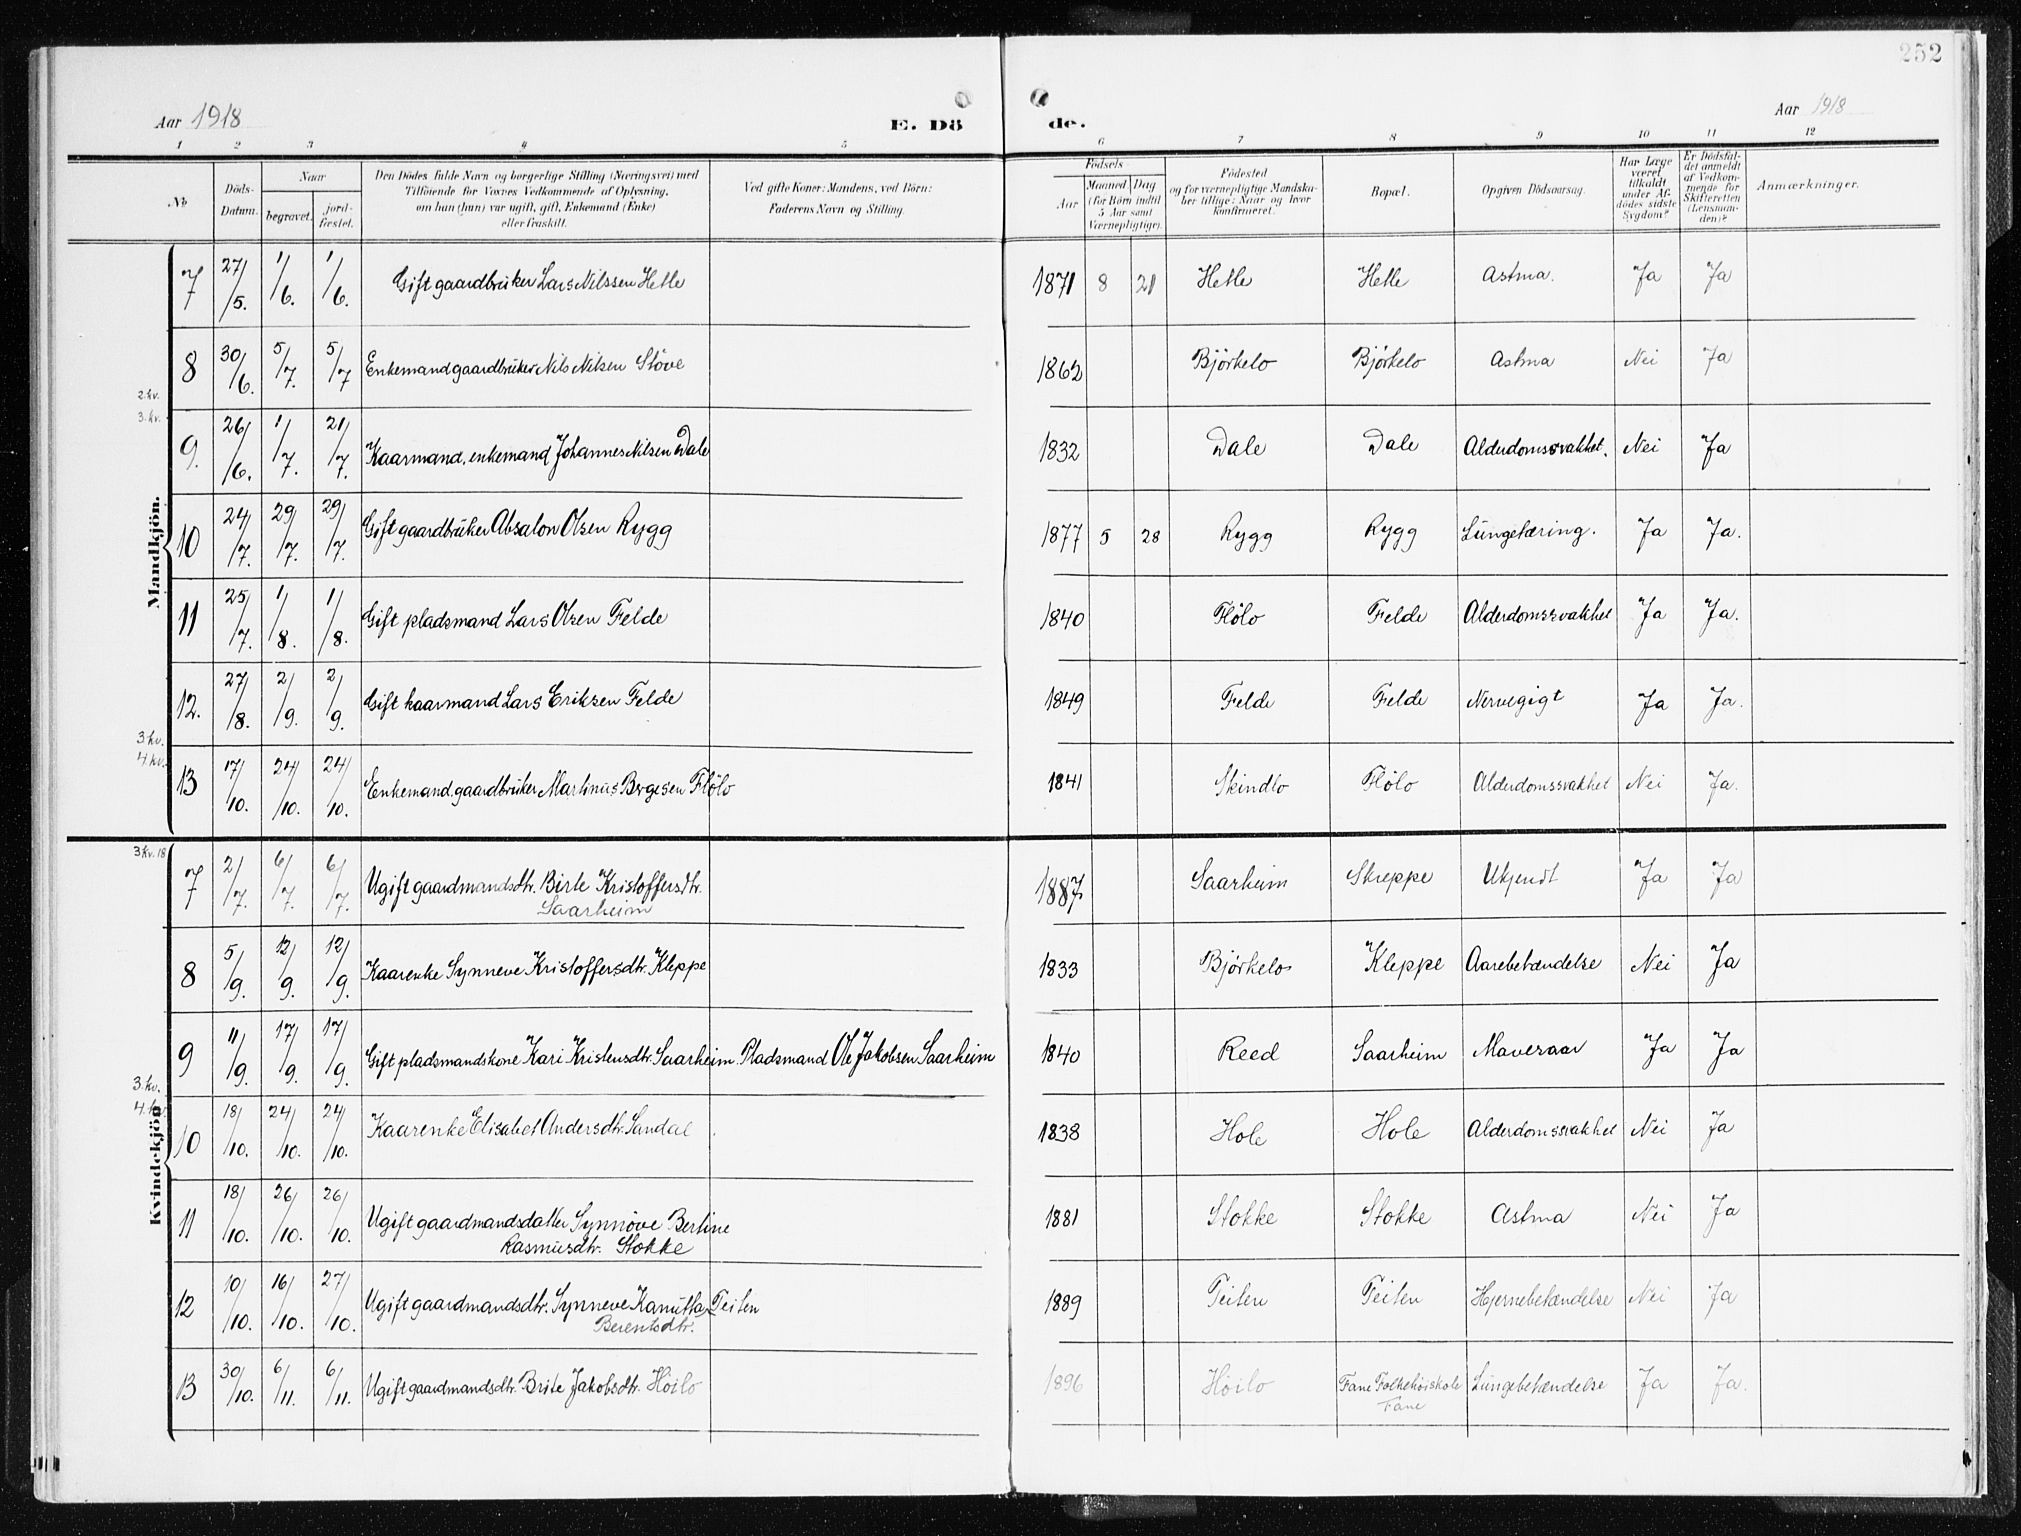 252
Aar 1918
E. Dö
de.
Aar 1918
1 2 3 4 5 6 7 8 9 10 11 12
No
Döds-Datum.
Naar
begravet.
jord-fæstet.
Den Dödes fulde Navn og borgerlige Stilling (Næringsvei) med
Tilföiende for Voxnes Vedkommende af Oplysning,
om han (hun) var ugift, gift, Enkemand (Enke)
eller fraskilt.
Ved gifte Koner: Mandens, ved Börn:
Faderens Navn og Stilling.
Födsels
Aar
Maaned Dag
(for Börn indtil
5 Aar samt
Værnepligtige).
Födested
og for værnepligtige Mandska-
ber tillige: Naar og hvor
konfirmeret.
Bopæl.
Opgiven Dödsaarsag.
Har Læge
været
tilkaldt
under Af-
dödes sidste
Sygdom?
Er Dödsfal-
det anmeldt
af Vedkom-
mende for
Skifteretten
(Lensman-
den)?
Anmærkninger.
Mandkjön.
7 27/5. 1/6. 1/6. Gift gaardbruker Lars Nilssen Hetle 1871 8 21 Hetle Hetle Astma. Ja Ja
8 30/6. 5/7. 5/7 Enkemand gaardbruker Nils Nilsen Støve 1862 Bjørkelo Bjørkelo Astma Nei Ja
2.kv.
3.kv.
9. 26/6. 1/7. 21/7. Kaarmand, enkemand Johannes Nilsen Dale 1832 Dale Dale Alderdomssvakhet. Nei Ja
10 24/7. 29/7. 29/7. Gift gaardbruker Absalon Olsen Rygg 1877 5 28 Rygg Rygg Lungetæring. Ja Ja.
11 25/7. 1/8. 1/8. Gift pladsmand Lars Olsen Felde 1840 Flølo Felde Alderdomssvakhet Ja Ja.
12. 27/8. 2/9. 2/9. Gift kaarmand Lars Eriksen Felde 1849 Felde Felde Nervegigt Ja Ja.
3.kv.
4.kv.
13 17/10. 24/10. 24/10. Enkemand gaardbruker Martinus Bergesen Flølo 1841 Skindlo Flølo Alderdomssvakhet Nei Ja.
Kvindekjön
3 kv. 18
7 2/7. 6/7. 6/7. Ugift gaardmandsdtr. Birte Kristoffersdtr. 1887 Saarheim Skreppe Ukjendt Ja Ja
Saarheim
8 5/9. 12/9. 12/9. Kaarenke Synneve Kristoffersdtr. Kleppe 1833 Bjørkelo Kleppe Aarebetændelse Nei Ja
9 11/9. 17/9. 17/9. Gift pladsmandskone Kari Kristensdtr. Saarheim. Pladsmand Ole Jakobsen Saarheim 1840 Reed Saarheim Mavesaar Ja Ja
3.kv.
4.kv.
10 18/10. 24/10. 24/10. Kaarenke Elisabet Andersdtr. Sandal 1838 Hole Hole Alderdomssvakhet Nei Ja
11 18/10. 26/10. 26/10. Ugift gaardmandsdatter Synnøve Bertine 1881 Stokke Stokke Astma Nei Ja
Rasmusdtr. Stokke
12 10/10. 16/10. 27/10. Ugift gaardmandsdtr. Synneve Kanutta Teiten 1889 Teiten Teiten Hjernebetændelse Nei Ja
Berentsdtr.
13 30/10. 6/11. 6/11. Ugift gaardmandsdtr. Brite Jakobsdtr. Høilo 1896 Høilo Fane Folkehøiskole Lungebetændelse Ja Ja.
Fane